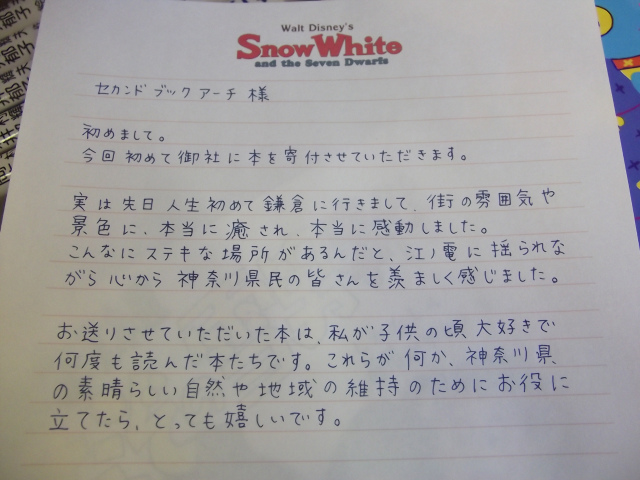 Walt Disney's
Snow White
and the Seven Dwarfs
セカンドブックアーチ 様
初めまして。
今回 初めて御社に本を寄付させていただきます。
実は先日 人生初めて鎌倉に行きまして、街の雰囲気や
景色に、本当に癒され、本当に感動しました。
こんなにステキな場所があるんだと、江ノ電に揺られな
がら心から 神奈川県民の皆さんを羨ましく感じました。
お送りさせていただいた本は、私が子供の頃 大好きで
何度も読んだ本たちです。これらが何か、神奈川県
の素晴らしい自然や地域の維持のためにお役に
立てたら、とっても嬉しいです。